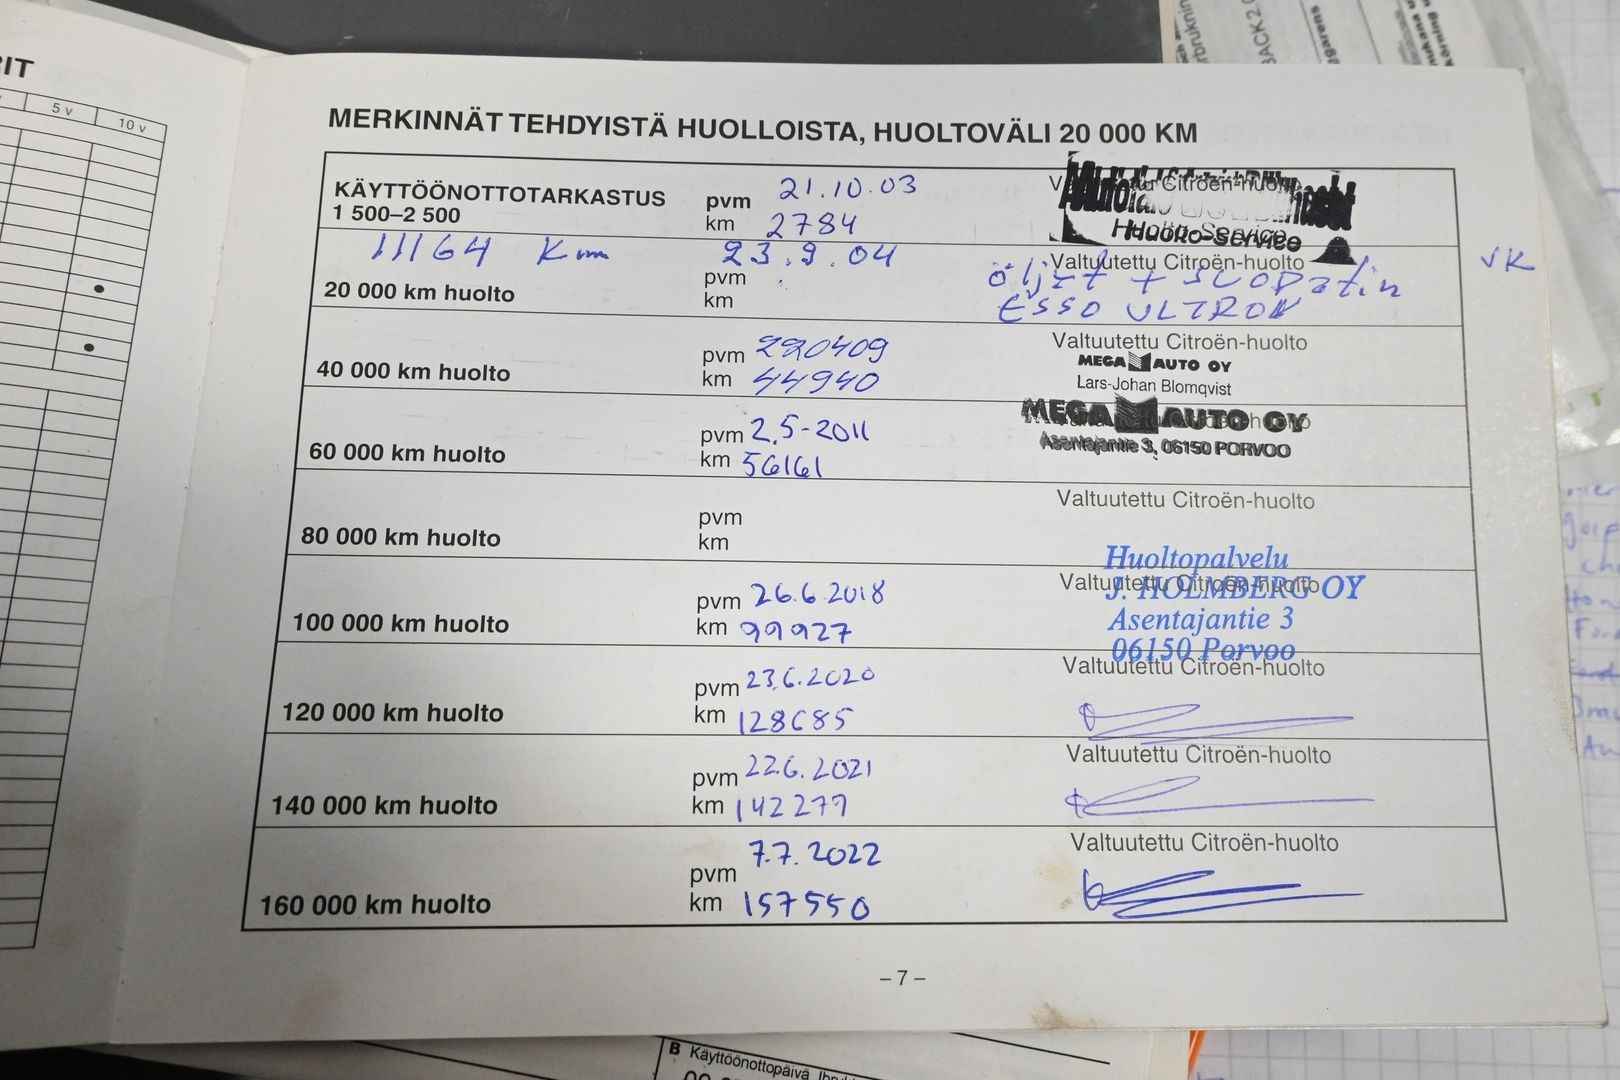 5 v
10 v
MERKINNÄT TEHDYISTÄ HUOLLOISTA, HUOLTOVÄLI 20 000 KM
KÄYTTÖÖNOTTOTARKASTUS
1 500–2 500
pvm 21.10.03
km 2784
Citroën-huolto
Huolto-Service
11164 Km 23.9.04
20 000 km huolto
pvm
km
Valtuutettu Citroën-huolto
öljyt + suodatin
ESSO ULTRON
VK
40 000 km huolto
pvm 220409
km 44940
Valtuutettu Citroën-huolto
MEGA AUTO OY
Lars-Johan Blomqvist
60 000 km huolto
pvm 2.5-2011
km 56161
MEGA AUTO OY
Asentajantie 3, 06150 PORVOO
80 000 km huolto
pvm
km
Valtuutettu Citroën-huolto
100 000 km huolto
pvm 26.6.2018
km 99927
Valtuutettu Citroën-huolto
Huoltopalvelu
J. HOLMBERG OY
Asentajantie 3
06150 Porvoo
120 000 km huolto
pvm 23.6.2020
km 128685
Valtuutettu Citroën-huolto
140 000 km huolto
pvm 22.6.2021
km 142277
Valtuutettu Citroën-huolto
160 000 km huolto
pvm 7.7.2022
km 157550
Valtuutettu Citroën-huolto
– 7 –
B Käyttöönottopäivä